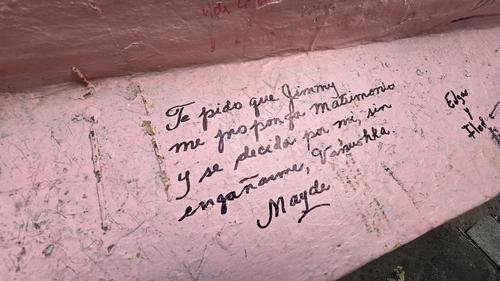 Te pido que Jimmy
me proponga matrimonio
y se decida por mi, sin
engañarme, Vanushka.
Mayde
Edgar
y